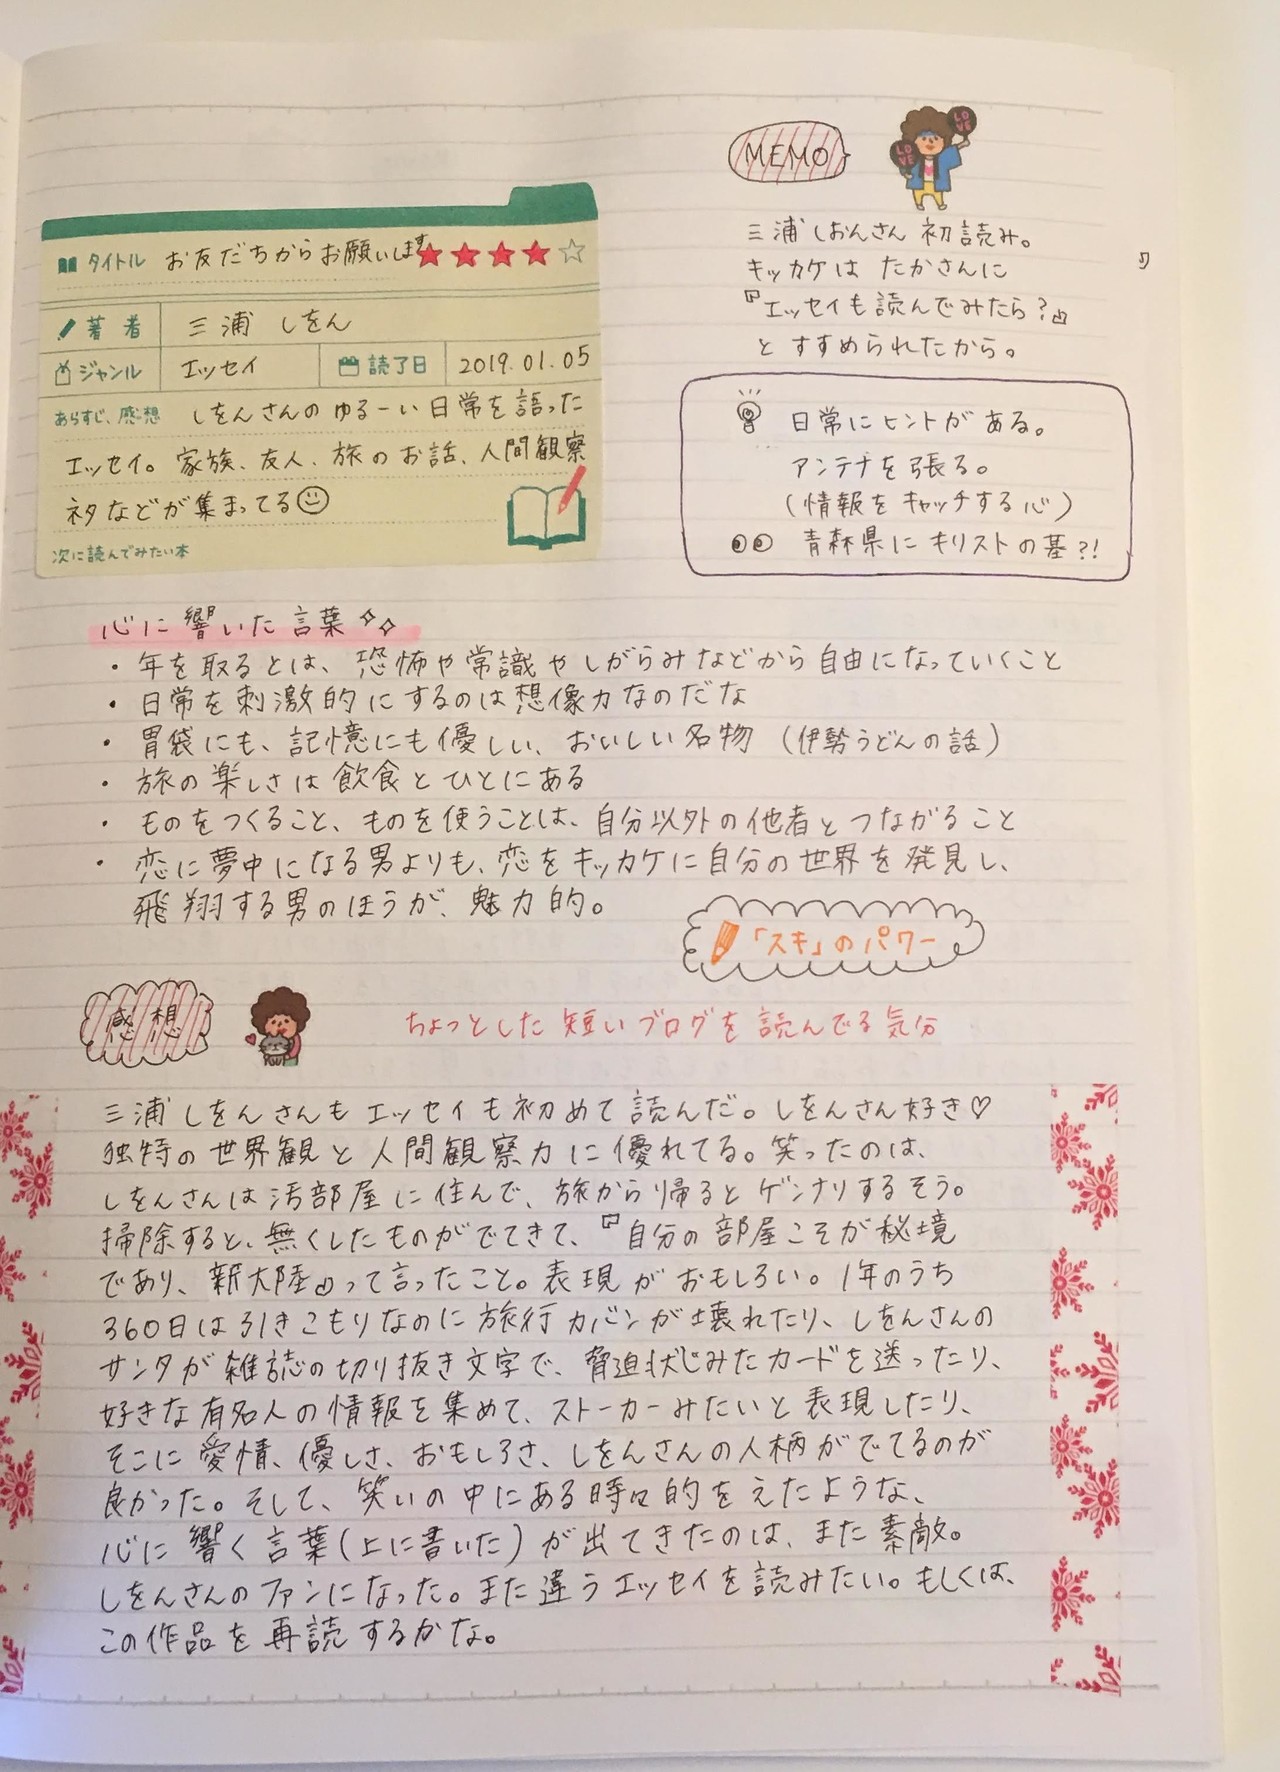 タイトル お友だちからお願いします ★★★★☆
著者 三浦 しをん
ジャンル エッセイ 読了日 2019.01.05
あらすじ、感想 しをんさんのゆるーい日常を語った
エッセイ。家族、友人、旅のお話、人間観察
ネタなどが集まってる
次に読んでみたい本
MEMO
LOVE
LOVE
三浦しおんさん 初読み。
キッカケは たかさんに
『エッセイも読んでみたら?』
とすすめられたから。
日常にヒントがある。
アンテナを張る。
(情報をキャッチする心)
青森県にキリストの墓?!
心に響いた言葉
・年を取るとは、恐怖や常識やしがらみなどから自由になっていくこと
・日常を刺激的にするのは想像力なのだな
・胃袋にも、記憶にも優しい、おいしい名物 (伊勢うどんの話)
・旅の楽しさは飲食とひとにある
・ものをつくること、ものを使うことは、自分以外の他者とつながること
・恋に夢中になる男よりも、恋をキッカケに自分の世界を発見し、
飛翔する男のほうが、魅力的。
「スキ」のパワー
感想
ちょっとした短いブログを読んでる気分
三浦しをんさんもエッセイも初めて読んだ。しをんさん好き♡
独特の世界観と人間観察力に優れてる。笑ったのは、
しをんさんは汚部屋に住んで、旅から帰るとゲンナリするそう。
掃除すると、無くしたものがでてきて、『自分の部屋こそが秘境
であり、新大陸』って言ったこと。表現がおもしろい。1年のうち
360日は引きこもりなのに旅行カバンが壊れたり、しをんさんの
サンタが雑誌の切り抜き文字で、脅迫状じみたカードを送ったり、
好きな有名人の情報を集めて、ストーカーみたいと表現したり、
そこに愛情、優しさ、おもしろさ、しをんさんの人柄がでてるのが
良かった。そして、笑いの中にある時々的をえたような、
心に響く言葉(上に書いた)が出てきたのは、また素敵。
しをんさんのファンになった。また違うエッセイを読みたい。もしくは、
この作品を再読するかな。